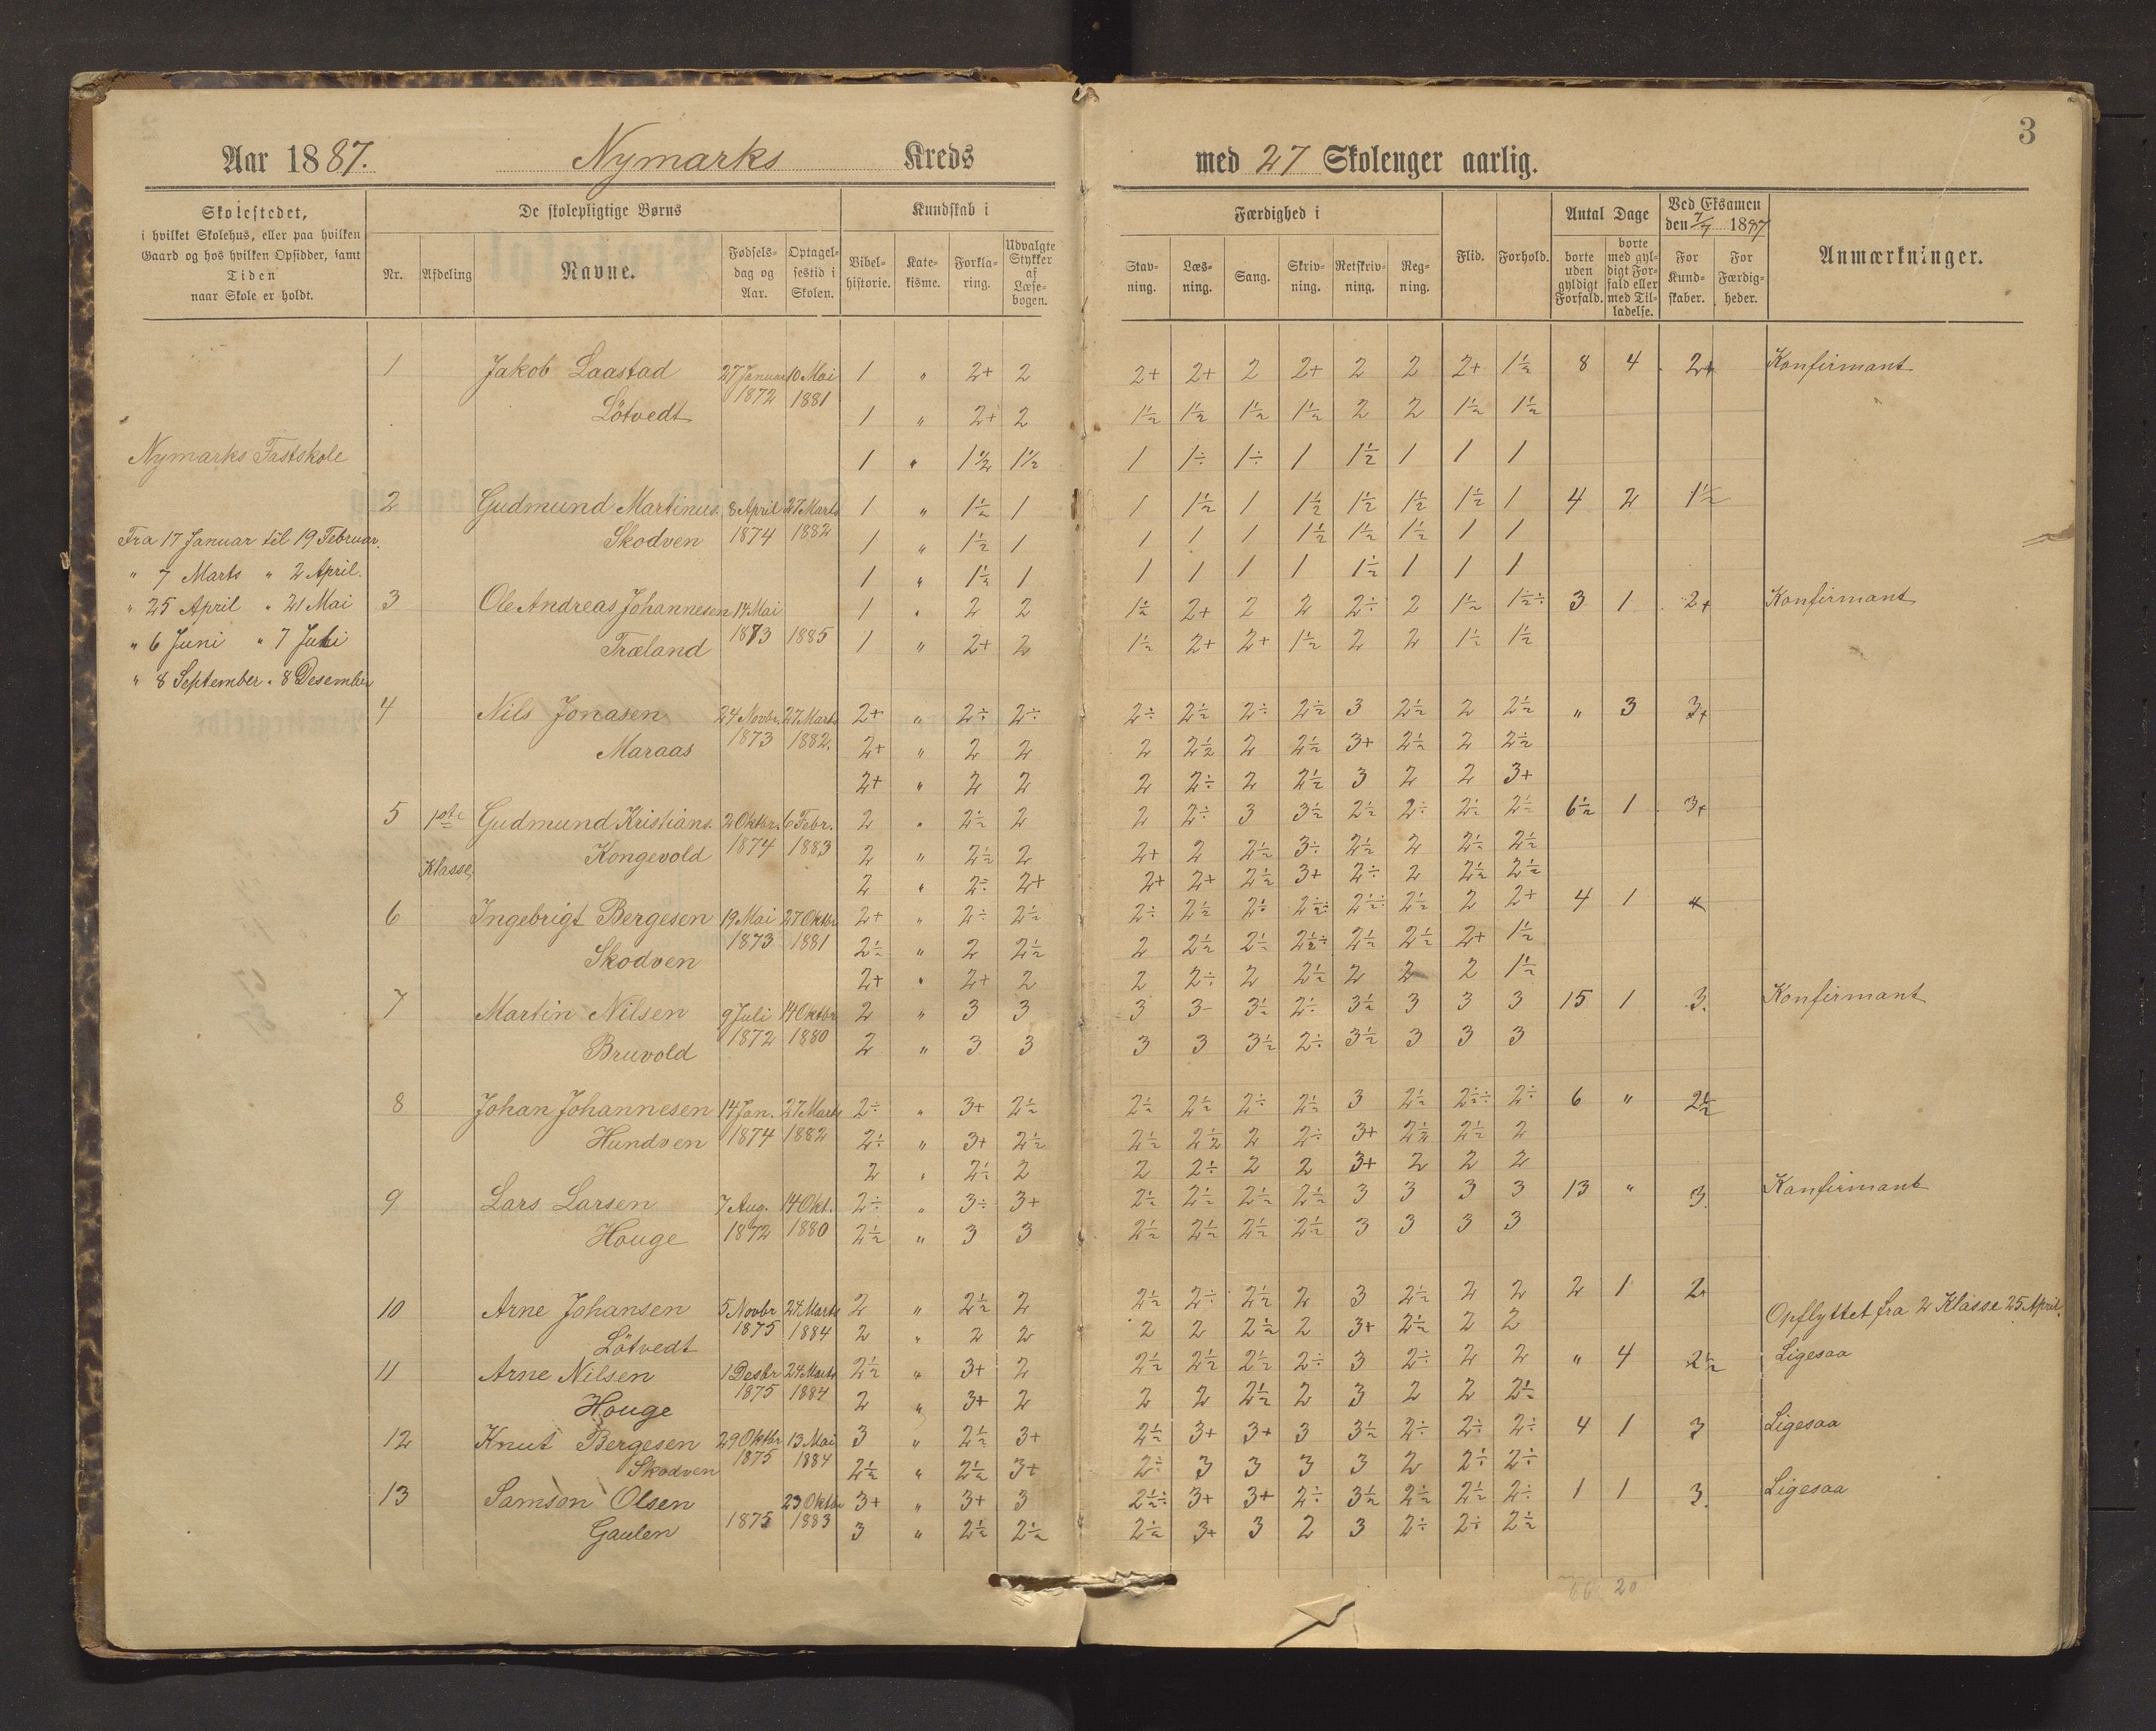 3
Aar 1887. Nymarks Kreds med 27 Skolenger aarlig.
Skolestedet,
i hvilket Skolehus, eller paa hvilken
Gaard og hos hvilken Opsidder, samt
Tiden
naar Skole er holdt.
De skolepligtige Børns
Nr. Afdeling Navne. Fødsels-dag og Aar. Optagel-sestid i Skolen.
Kundskab i
Bibel-historie. Kate-kisme. Forkla-ring. Udvalgte Stykker af Læse-bogen.
Færdighed i
Stav-ning. Læs-ning. Sang. Skriv-ning. Retskriv-ning. Reg-ning. Flid. Forhold.
Antal Dage
borte uden gyldigt Forfald. borte med gyl-digt For-fald eller med Til-ladelse.
Ved Eksamen
den 7/7 1887
For Kund-skaber. For Færdig-heder.
Anmærkninger.
Nymarks Fastskole
Fra 17 Januar til 19 Februar.
" 7 Marts " 2 April.
" 25 April " 21 Mai
" 6 Juni " 7 Juli
" 8 September " 8 Desember
1ste
Klasse
1 Jakob Laastad 27 Januar 10 Mai 1 " 2+ 2 2+ 2+ 2 2+ 2 2 2+ 1½ 8 4 2+ Konfirmant
Lötvedt 1872 1881 1 " 2+ 2 1½ 1½ 1½ 1½ 2 2 1½ 1½
1 " 1½ 1½ 1 1÷ 1÷ 1 1½ 1 1 1
2 Gudmund Martinus. 8 April 27 Marts 1 " 1½ 1 1 1½ 1 1½ 1½ 1½ 1½ 1 4 2 1½
Skodven 1874 1882 1 " 1½ 1 1 1 1 1½ 1½ 1½ 1 1
1 " 1½ 1 1 1 1 1 1½ 1 1 1
3 Ole Andreas Johannesen 14 Mai 1 " 2 2 1½ 2+ 2 2 2÷ 2 1½ 1½÷ 3 1 2+ Konfirmant
Træland 1873 1885 1 " 2+ 2 1½ 2+ 2+ 1½ 2 2 1½ 1½
4 Nils Jonasen 24 Novbr. 27 Marts 2+ " 2÷ 2÷ 2÷ 2½ 2÷ 2½ 3 2½ 2 2½ " 3 3+
Maraas 1873 1882. 2+ " 2 2 2 2½ 2 2½ 3+ 2½ 2 2½
2+ " 2 2 2 2÷ 2 2½ 3 2 2 3+
5 Gudmund Kristians. 2 Oktbr. 6 Febr. 2 " 2½ 2 2 2÷ 3 3½ 2½ 2÷ 2½ 2½ 6½ 1 3+
Kongevold 1874 1883 2 " 2½ 2 2+ 2 2½ 3÷ 2½ 2 2½ 2½
2 " 2÷ 2+ 2+ 2+ 2½ 3+ 2÷ 2 2½ 2½
6 Ingebrigt Bergesen 19 Mai 27 Oktbr 2+ " 2÷ 2½ 2÷ 2½ 2÷ 2½÷ 2½÷ 2½ 2 2+ 4 1
Skodven 1873 1881 2½ " 2 2½ 2 2½ 2½ 2½÷ 2½ 2½ 2+ 1½
2+ " 2+ 2 2 2÷ 2 2½ 2 2 2 1½
7 Martin Nilsen 9 Juli 14 Oktbr 2 " 3 3 3 3- 3½ 2÷ 3½ 3 3 3 15 1 3. Konfirmant
Bruvold 1872 1880 2 " 3 3 3 3 3½ 2÷ 3½ 3 3 3
8 Johan Johannesen 14 Jan. 27 Marts 2÷ " 3+ 2½ 2½ 2½ 2÷ 2½ 3 2½ 2½÷ 2÷ 6 " 2½
Hundven 1874 1882 2÷ " 3+ 2½ 2½ 2½ 2 2÷ 3+ 2½ 2½ 2
2 " 2½ 2 2 2÷ 2 2 3+ 2 2 2
9 Lars Larsen 7 Aug. 14 Okt. 2÷ " 3÷ 3+ 2½ 2½ 2½ 2½ 3 3 3 3 13 " 3. Konfirmant
Houge 1872 1880 2½ " 3 3 2½ 2½ 2½ 2½ 3 3 3 3
10 Arne Johansen 5 Novbr 24 Marts 2 " 2½ 2 2½ 2÷ 2½ 2 3 2½ 2 2 2 1 2 Opflyttet fra 2 Klasse 25 April.
Lötvedt 1875 1884 2 " 2 2 2 2 2½ 2 3+ 2½ 2 2
11 Arne Nilsen 1 Desbr 24 Marts 2½ " 3+ 2 2½ 2½ 2½ 2÷ 3 2÷ 2 2 " 4 2½ Ligesaa
Houge 1875 1884 2 " 3+ 2 2 2 2½ 2 3 2 2 2½
12 Knut Bergesen 29 Oktbr 13 Mai 3 " 2½ 3+ 2½ 3+ 3+ 3 3½ 2÷ 2÷ 2÷ 4 1 3 Ligesaa
Skodven 1875 1884 2½ " 2½ 3+ 2÷ 3 3 3 3 2 2÷ 2÷
13 Samson Olsen 23 Oktbr 3+ " 3+ 3 2½÷ 3+ 3+ 2÷ 3½ 2½ 2½ 2÷ 1 1 3. Ligesaa
Gaulen 1875 1883 3 " 2½ 2½ 2½ 3+ 3 2 3 2÷ 2÷ 2½
66 20